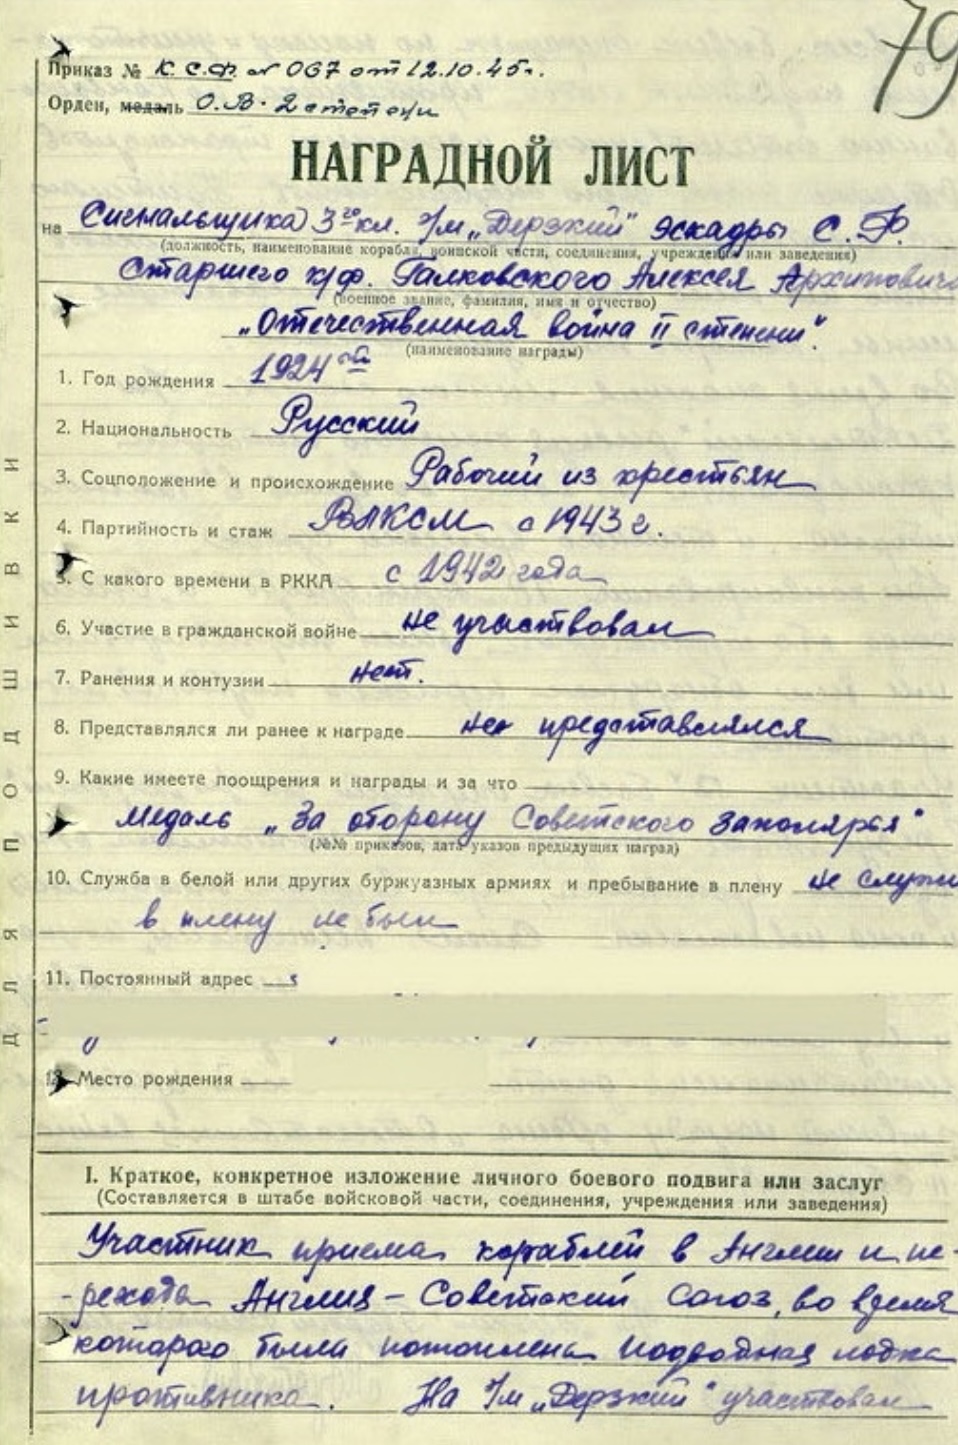 79
Приказ № К.С.Ф. № 067 от 12.10.45г.
Орден, медаль О.В. 2 степени
НАГРАДНОЙ ЛИСТ
на Сигнальщика 3го кл. э/м „Дерзкий" эскадры С.Ф.
(должность, наименование корабля, воинской части, соединения, учреждения или заведения)
Старшего к/ф. Галковского Алексея Архипович
(военное звание, фамилия, имя и отчество)
„Отечественная война II степени".
(наименование награды)
1. Год рождения 1924
2. Национальность Русский
3. Соцположение и происхождение Рабочий из крестьян
4. Партийность и стаж ВЛКСМ с 1943 г.
5. С какого времени в РККА с 1942 года
6. Участие в гражданской войне не участвовал
7. Ранения и контузии нет.
8. Представлялся ли ранее к награде не представлялся
9. Какие имеете поощрения и награды и за что
Медаль „За оборону Советского Заполярья"
(№№ приказов, дата указов предыдущих наград)
10. Служба в белой или других буржуазных армиях и пребывание в плену не служи
в плену не был
11. Постоянный адрес
12. Место рождения
I. Краткое, конкретное изложение личного боевого подвига или заслуг
(Составляется в штабе войсковой части, соединения, учреждения или заведения)
Участник приема кораблей в Англии и пе-
-рехода Англия – Советский Союз, во время
которого была потоплена подводная лодка
противника. На э/м „Дерзкий" участвовал
ДЛЯ ПОДШИВКИ